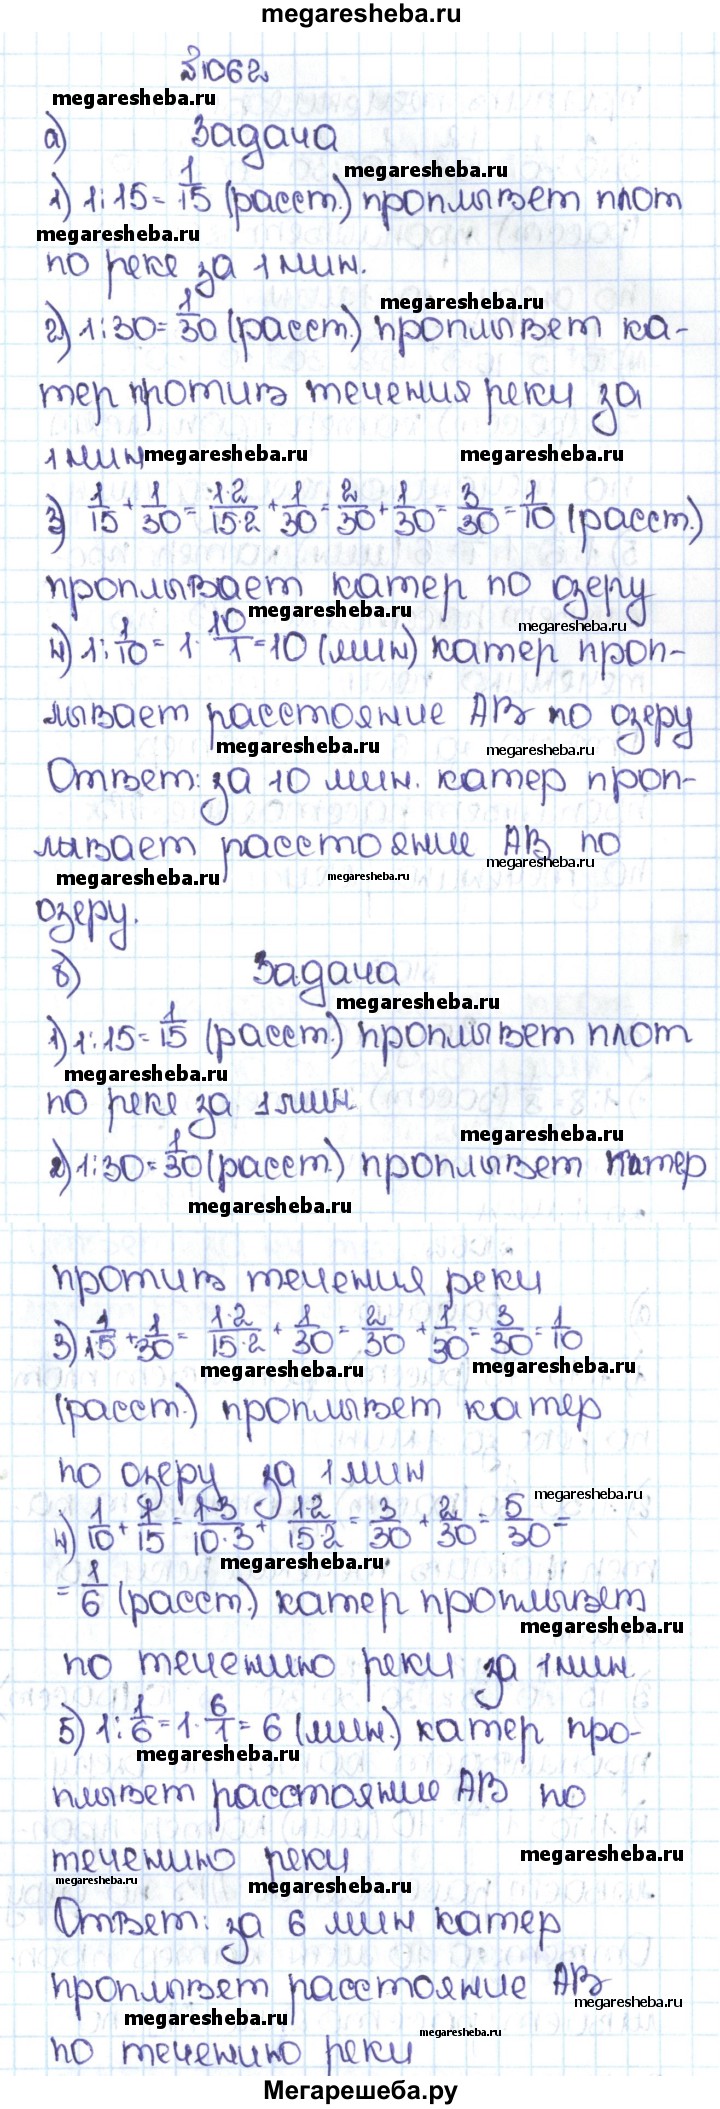 megaresheba.ru
№1062
megaresheba.ru
а) Задача
megaresheba.ru
1) 1:15=1/15 (расст.) проплывет плот
megaresheba.ru
по реке за 1 мин.
megaresheba.ru
2) 1:30=1/30 (расст.) проплывет ка-
тер против течения реки за
1 мин megaresheba.ru megaresheba.ru
3) 1/15+1/30=1·2/15·2+1/30=2/30+1/30=3/30=1/10 (расст.)
проплывает катер по озеру
megaresheba.ru megaresheba.ru
4) 1:1/10=1·10/1=10 (мин) катер проп-
лывает расстояние АВ по озеру
megaresheba.ru megaresheba.ru
Ответ: за 10 мин. катер проп-
лывает расстояние АВ по
megaresheba.ru megaresheba.ru megaresheba.ru
озеру.
б) Задача
megaresheba.ru
1) 1:15=1/15 (расст.) проплывет плот
megaresheba.ru
по реке за 1 мин.
megaresheba.ru
2) 1:30=1/30 (расст.) проплывет катер
megaresheba.ru
против течения реки
3) 1/15+1/30=1·2/15·2+1/30=2/30+1/30=3/30=1/10
megaresheba.ru megaresheba.ru
(расст.) проплывет катер
по озеру за 1 мин
megaresheba.ru
4) 1/10+1/15=1·3/10·3+1·2/15·2=3/30+2/30=5/30=
megaresheba.ru
=1/6 (расст.) катер проплывет
megaresheba.ru
по течению реки за 1 мин.
5) 1:1/6=1·6/1=6 (мин.) катер про-
megaresheba.ru
плывет расстояние АВ по
течению реки
megaresheba.ru megaresheba.ru megaresheba.ru
Ответ: за 6 мин катер
проплывет расстояние АВ
megaresheba.ru megaresheba.ru
по течению реки
megaresheba.ru
Мегарешеба.ру